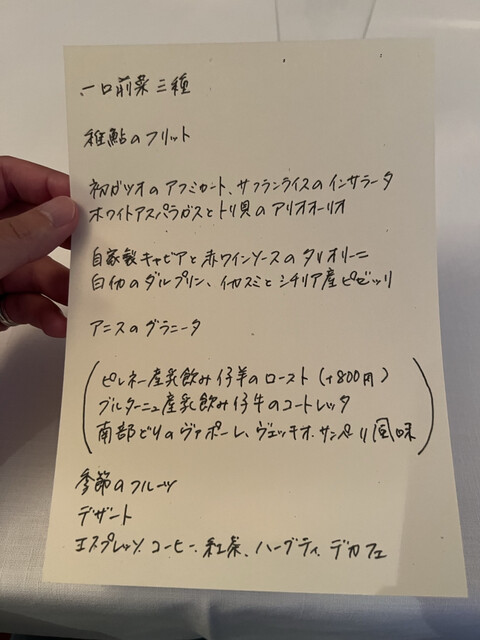 一口前菜三種
稚鮎のフリット
初ガツオのアフミカート、サフランライスのインサラータ
ホワイトアスパラガスとトリ貝のアリオオーリオ
自家製キャビアと赤ワインソースのタリオリーニ
白仙のダルプリン、イカスミとシチリア産ピゼッリ
アニスのグラニータ
ピレネー産乳飲み仔羊のロースト (+800円)
ブルターニュ産乳飲み仔牛のコートレッタ
南部どりのヴァポーレ、ヴェッキオ.サンペーリ風味
季節のフルーツ
デザート
エスプレッソ.コーヒー.紅茶、ハーブティ.デカフェ